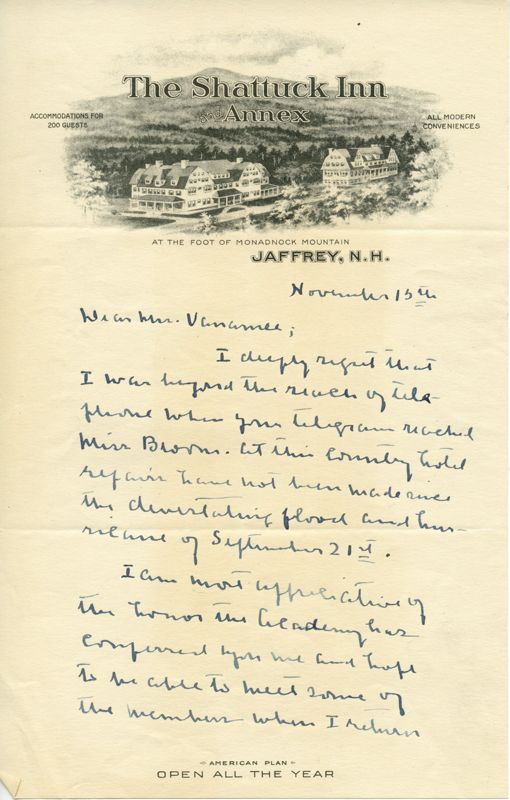 The Shattuck Inn
and Annex
ACCOMMODATIONS FOR
200 GUESTS
ALL MODERN
CONVENIENCES
AT THE FOOT OF MONADNOCK MOUNTAIN
JAFFREY, N.H.
November 15th
Dear Mrs. Vanamee;
I deeply regret that
I was beyond the reach of tele-
phone when your telegram reached
Miss Bloom. At this country hotel
repairs have not been made since
the devastating flood and hur-
ricane of September 21st.
I am most appreciative of
the honor the Academy has
conferred upon me and hope
to be able to meet some of
the members when I return
AMERICAN PLAN
OPEN ALL THE YEAR